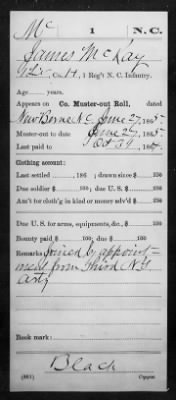 Mc 1 N.C.
James McKay
Co. H, 1 Reg't N. C. Infantry.
Age years.
Appears on Co. Muster-out Roll, dated
New Berne N.C. June 27, 1865.
Muster-out to date June 27, 1865.
Last paid to Oct 29, 186
Clothing account:
Last settled , 186 ; drawn since $ 100
Due soldier $ 100; due U. S. $ 100
Am't for cloth'g in kind or money adv'd $ 100
Due U. S. for arms, equipments, &c., $ 100
Bounty paid $ 100; due $ 100
Remarks: Joined by appoint-
ment from Third N.Y.
Arty
Book mark:
Black
(861) Copyist.